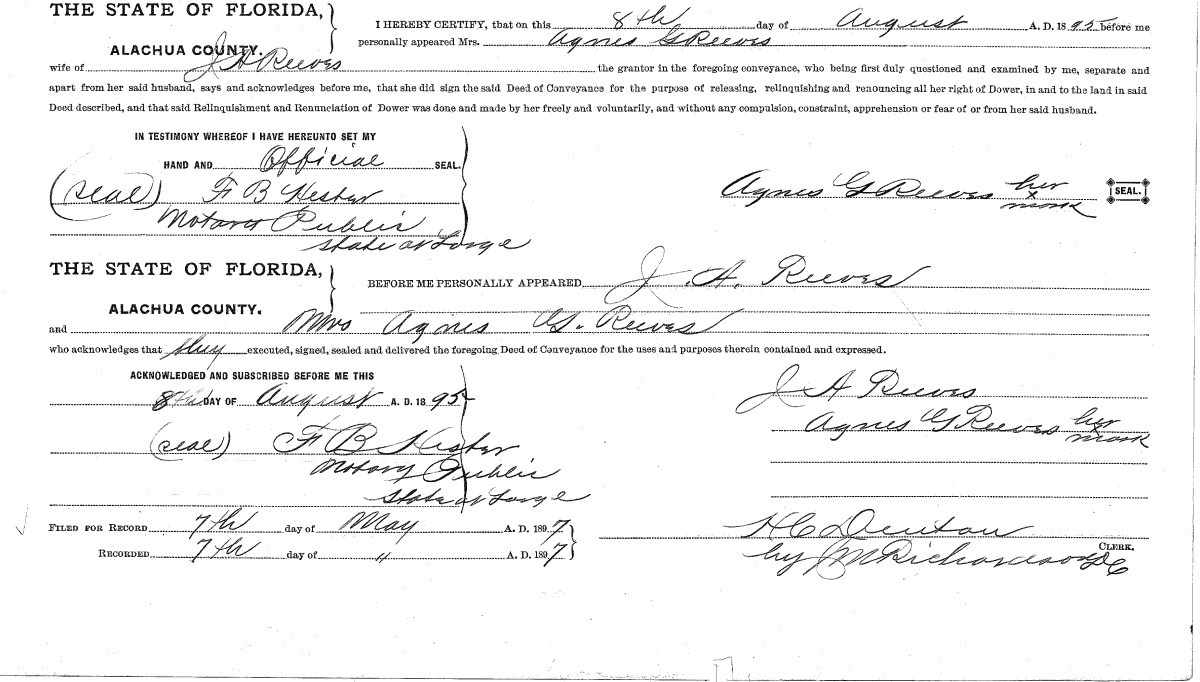 THE STATE OF FLORIDA,
ALACHUA COUNTY.
I HEREBY CERTIFY, that on this 8th day of August A. D. 1895 before me
personally appeared Mrs. Agnes G Reeves
wife of J A Reeves the grantor in the foregoing conveyance, who being first duly questioned and examined by me, separate and
apart from her said husband, says and acknowledges before me, that she did sign the said Deed of Conveyance for the purpose of releasing, relinquishing and renouncing all her right of Dower, in and to the land in said
Deed described, and that said Relinquishment and Renunciation of Dower was done and made by her freely and voluntarily, and without any compulsion, constraint, apprehension or fear of or from her said husband.
IN TESTIMONY WHEREOF I HAVE HEREUNTO SET MY
HAND AND Official SEAL.
(seal) F B Hester
Notary Public
State at Large
Agnes G Reeves her x mark SEAL.
THE STATE OF FLORIDA,
ALACHUA COUNTY.
BEFORE ME PERSONALLY APPEARED J. A. Reeves
and Mrs Agnes G. Reeves
who acknowledges that they executed, signed, sealed and delivered the foregoing Deed of Conveyance for the uses and purposes therein contained and expressed.
ACKNOWLEDGED AND SUBSCRIBED BEFORE ME THIS
8th DAY OF August A. D. 1895
(seal) F B Hester
Notary Public
State at Large
J A Reeves
Agnes G Reeves her x mark
FILED FOR RECORD 7th day of May A. D. 1897
RECORDED 7th day of " A. D. 1897
H C Denton
CLERK.
by J M Richardson D C